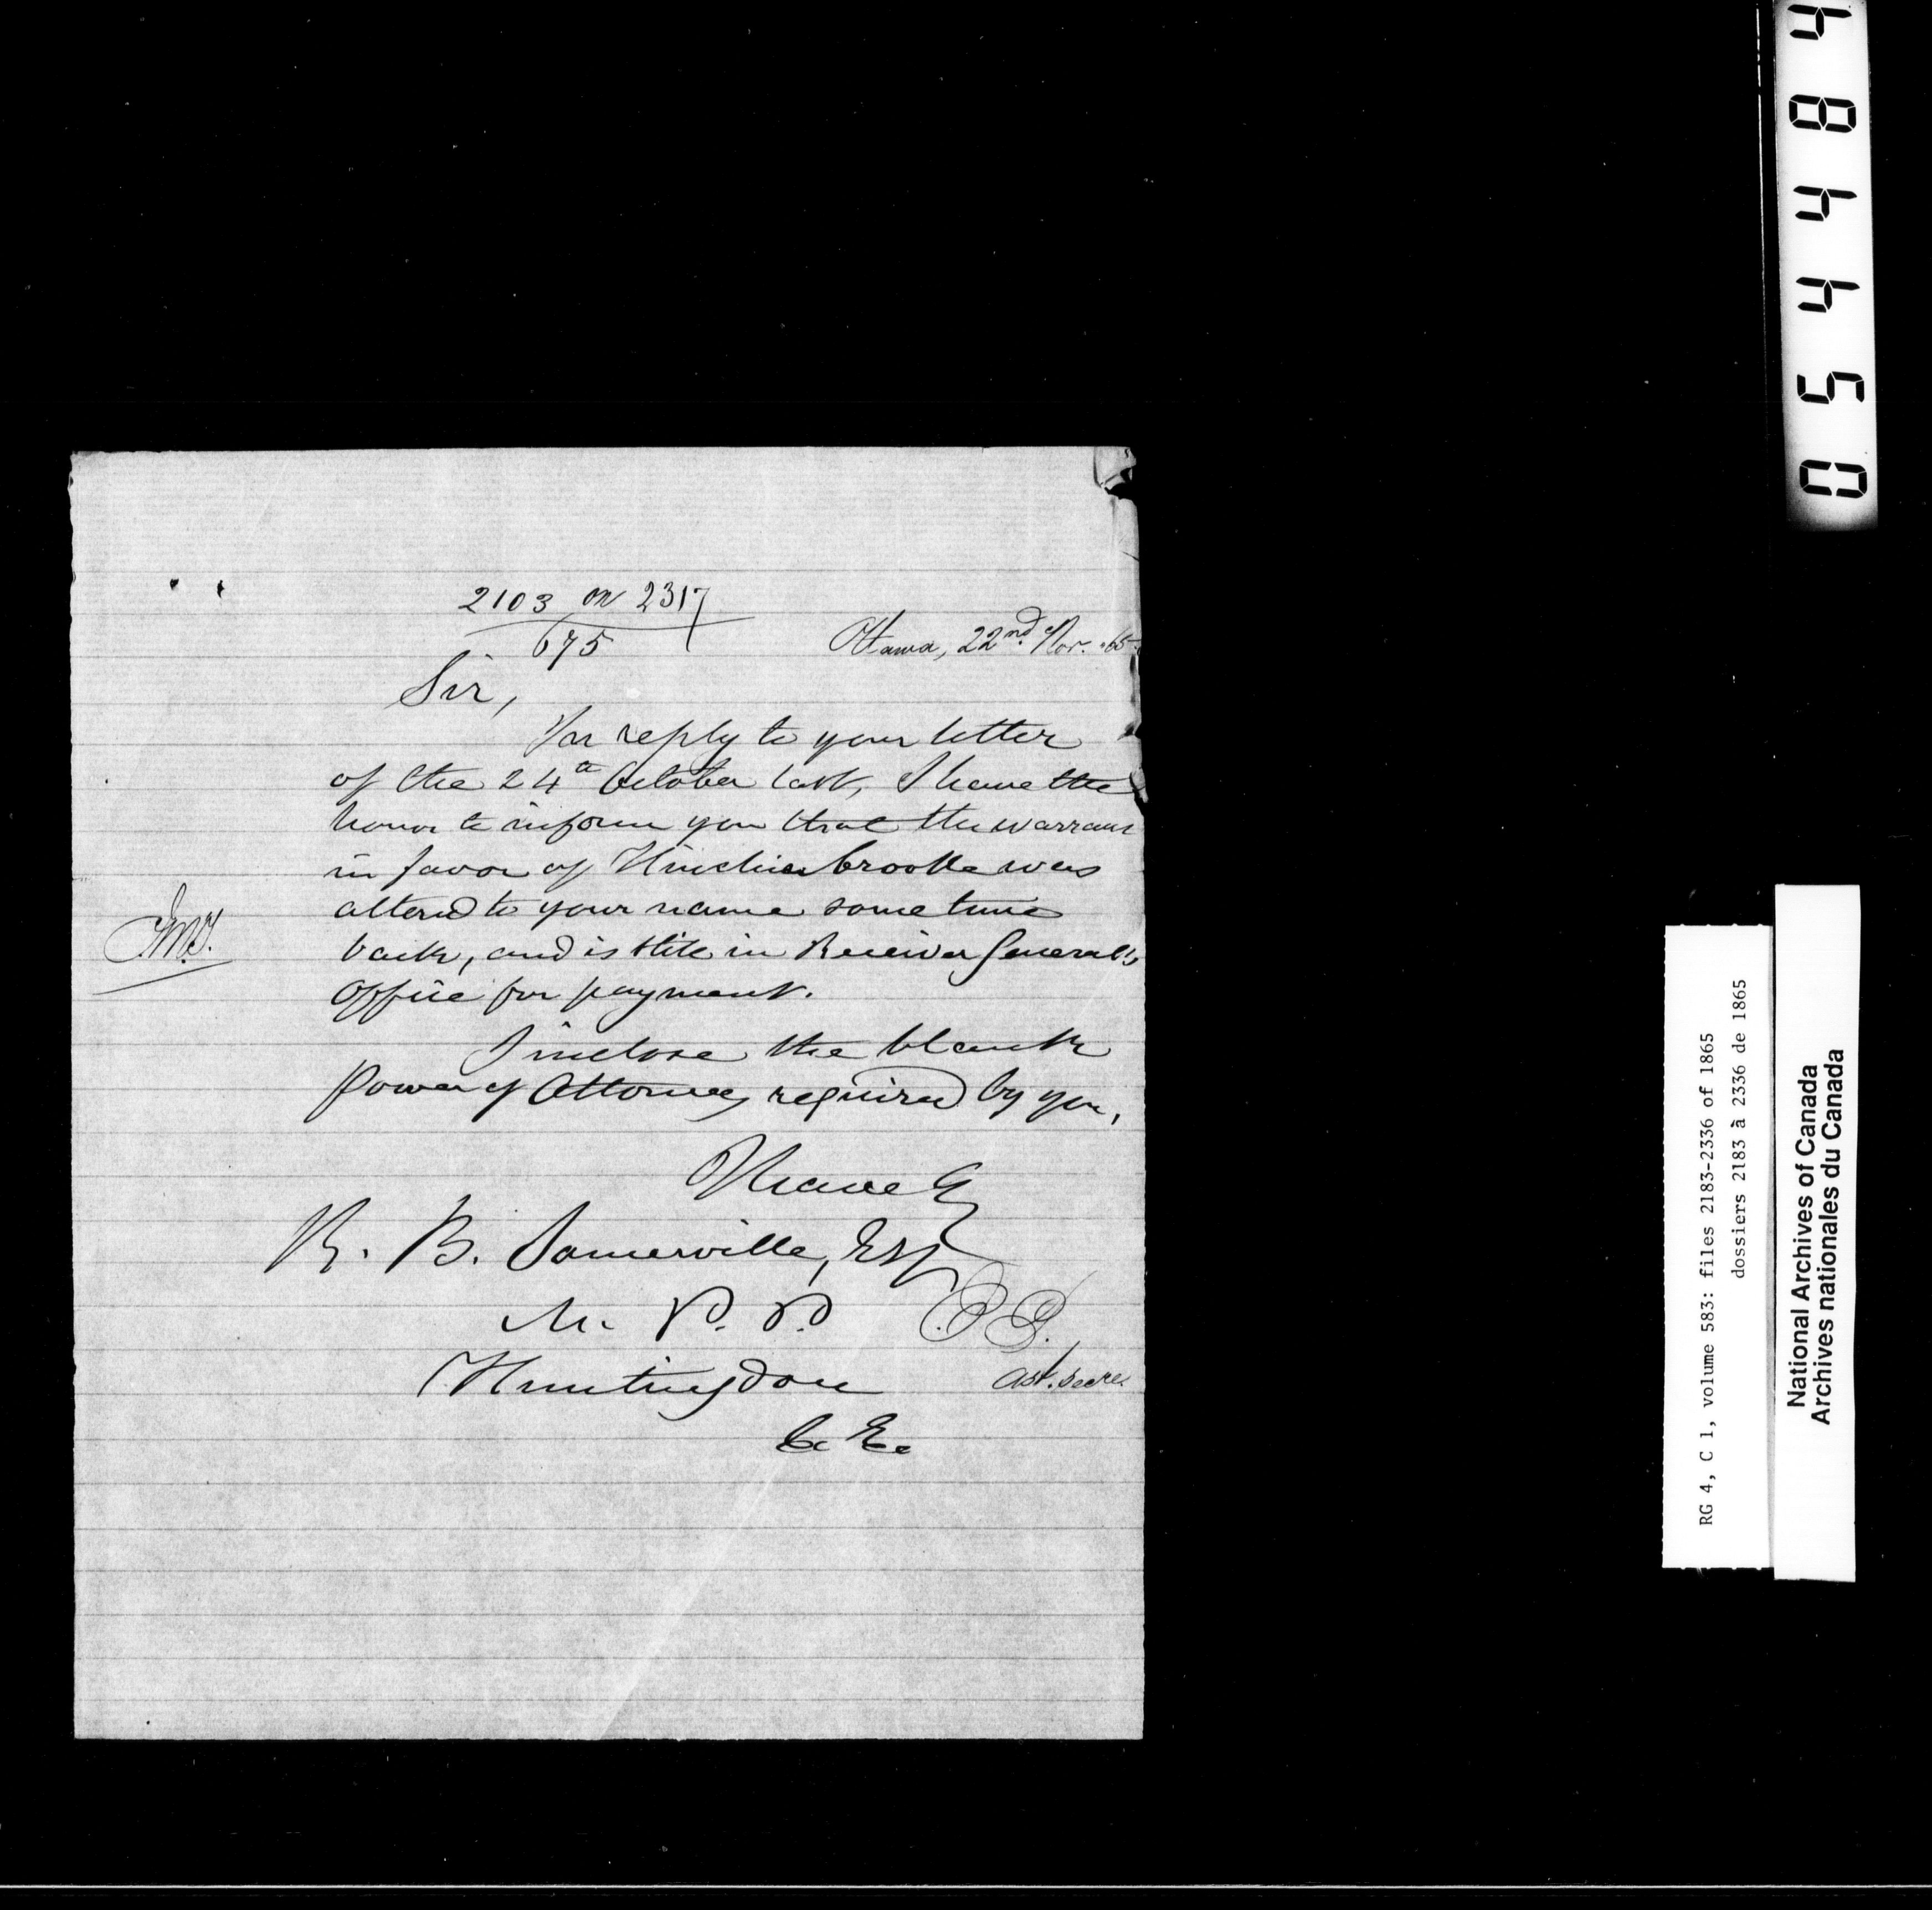 2103 on 2317
675
Ottawa, 22nd Nov. 65.
Sir,
In reply to your letter
of the 24th October last, I have the
honor to inform you that the warrant
in favor of Hinchinbrooke was
altered to your name some time
back, and is still in Receiver General's
office for payment.
I inclose the blank
Power of Attorney required by you,
I have &
R. B. Somerville, Esq
M. P. P.
Huntingdon
C. E.
Ast. Secre.
054484
RG 4, C 1, volume 583: files 2183-2336 of 1865
dossiers 2183 à 2336 de 1865
National Archives of Canada
Archives nationales du Canada